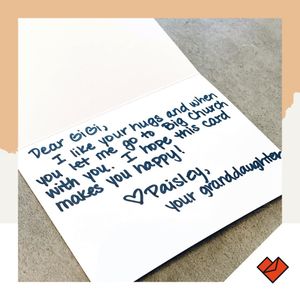 Dear GiGi,
I like your hugs and when
you let me go to Big Church
with you. I hope this card
makes you happy!
♡Paisley,
your granddaughter